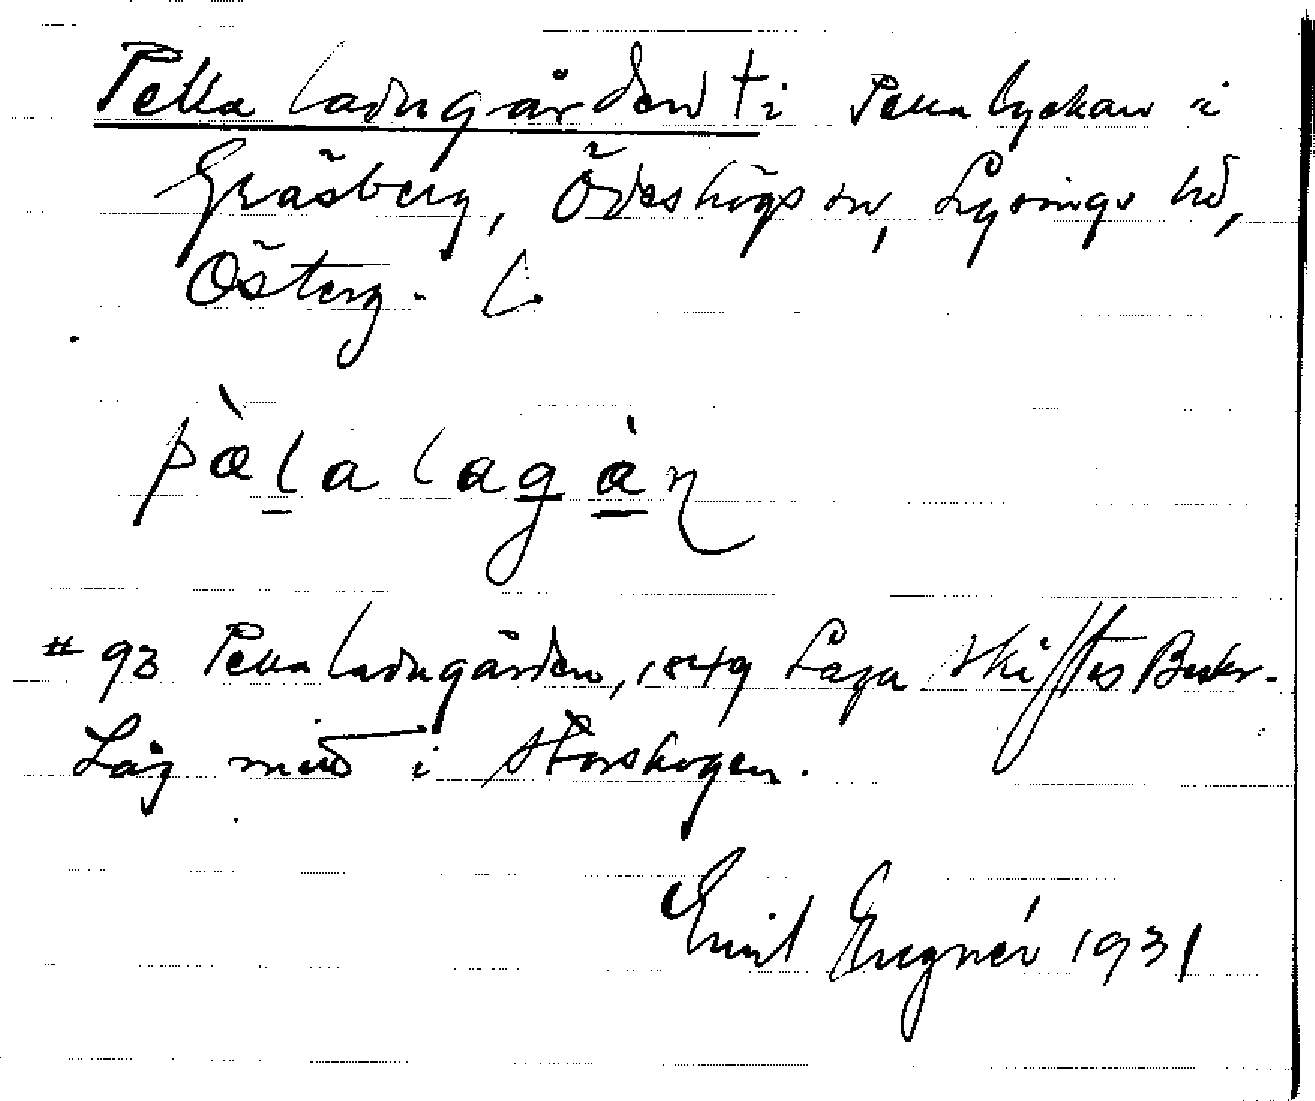 Pella ladugården † i Pella lyckan i
Gråsberg, Ödeshögs sn, Lysings hd,
Österg. L.
pàlalagàn
# 93 Pella ladugården, 1849 Laga skiftes Beskr.
Låg mitt i Storskogen.
Emil Engnér 1931